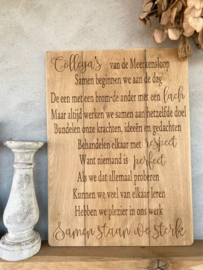 Collega's van de Meerkensloop
Samen beginnen we aan de dag
De een met een brom-de ander met een lach
Maar altijd werken we samen aan hetzelfde doel
Bundelen onze krachten, ideeën en gedachten
Behandelen elkaar met respect
Want niemand is perfect
Als we dat allemaal proberen
Kunnen we veel van elkaar leren
Hebben we plezier in ons werk
Samen staan we sterk